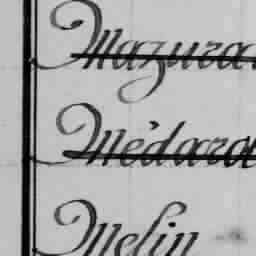 Mazura
Médara
Melin